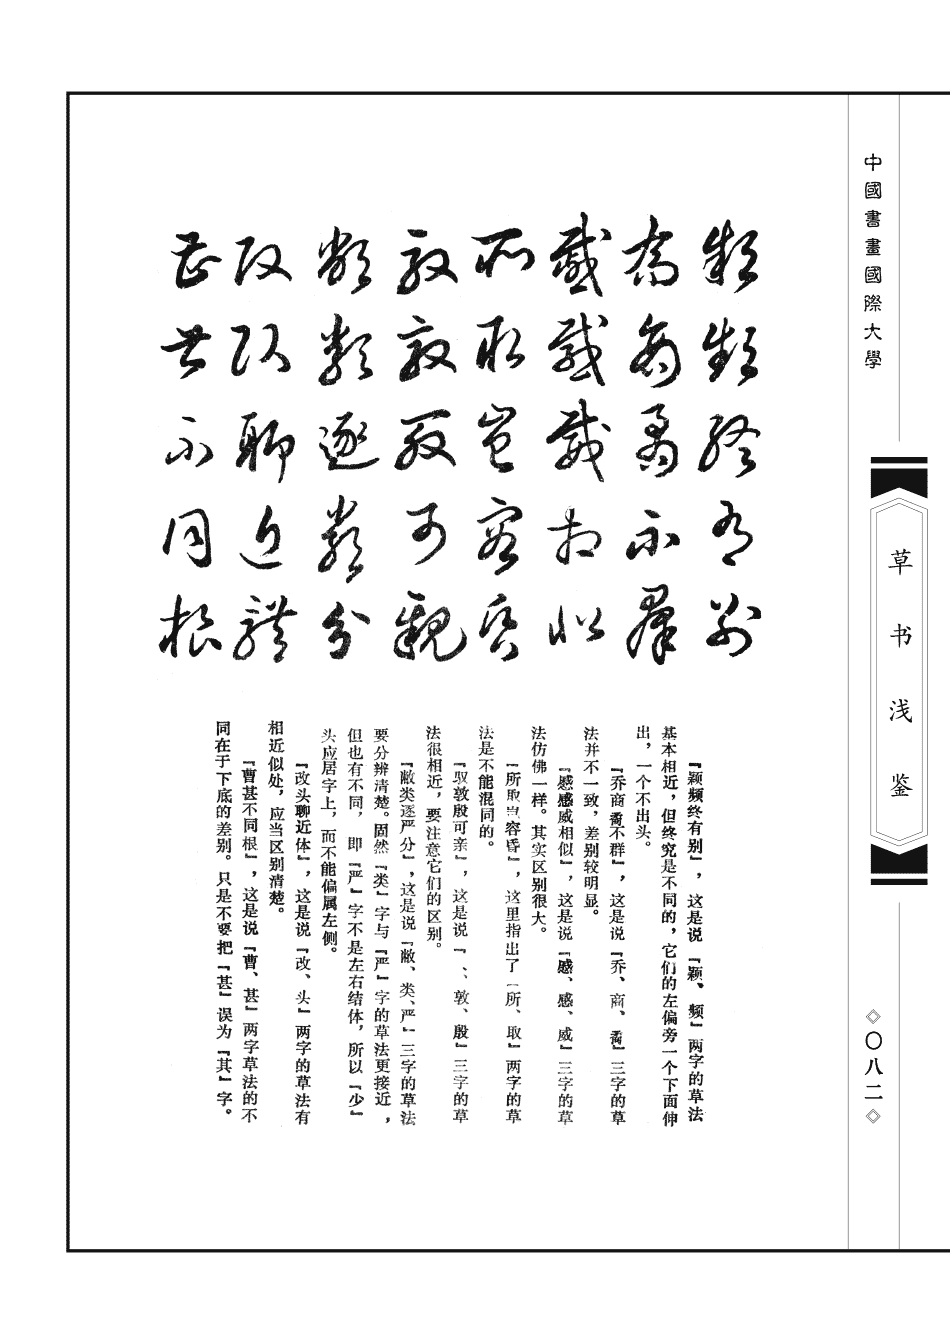 中國書畫國際大學
草书浅鉴
◇〇八二◇
终有别
乔商矞不群
感威相似
所取容昏
敦殷可觀
敝类逐严分
改头聊近體
曹甚不同根
『颖频终有别』，这是说『颖、频』两字的草法
基本相近，但终究是不同的，它们的左偏旁一个下面伸
出，一个不出头。
『乔商矞不群』，这是说『乔、商、矞』三字的草
法并不一致，差别较明显。
『慼感威相似』，这是说『慼、感、威』三字的草
法仿佛一样。其实区别很大。
『所取岂容昏』，这里指出了『所、取』两字的草
法是不能混同的。
『驭敦殷可亲』，这是说『、敦、殷』三字的草
法很相近，要注意它们的区别。
『敝类逐严分』，这是说『敝、类、严』三字的草法
要分辨清楚。固然『类』字与『严』字的草法更接近，
但也有不同，即『严』字不是左右结体，所以『少』
头应居字上，而不能偏属左侧。
『改头聊近体』，这是说『改、头』两字的草法有
相近似处，应当区别清楚。
『曹甚不同根』，这是说『曹、甚』两字草法的不
同在于下底的差别。只是不要把『甚』误为『其』字。